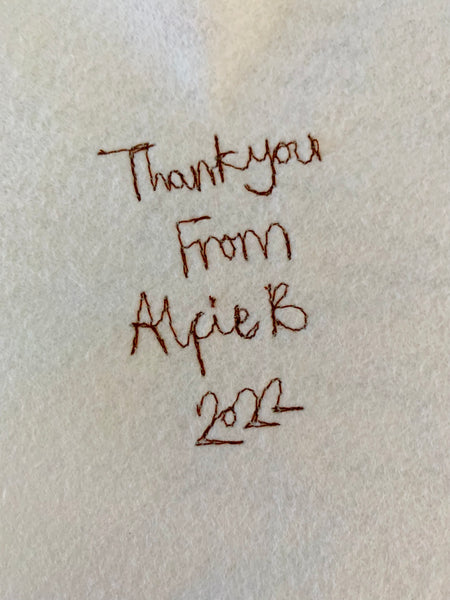 Thankyou
From
Alfie B
2022